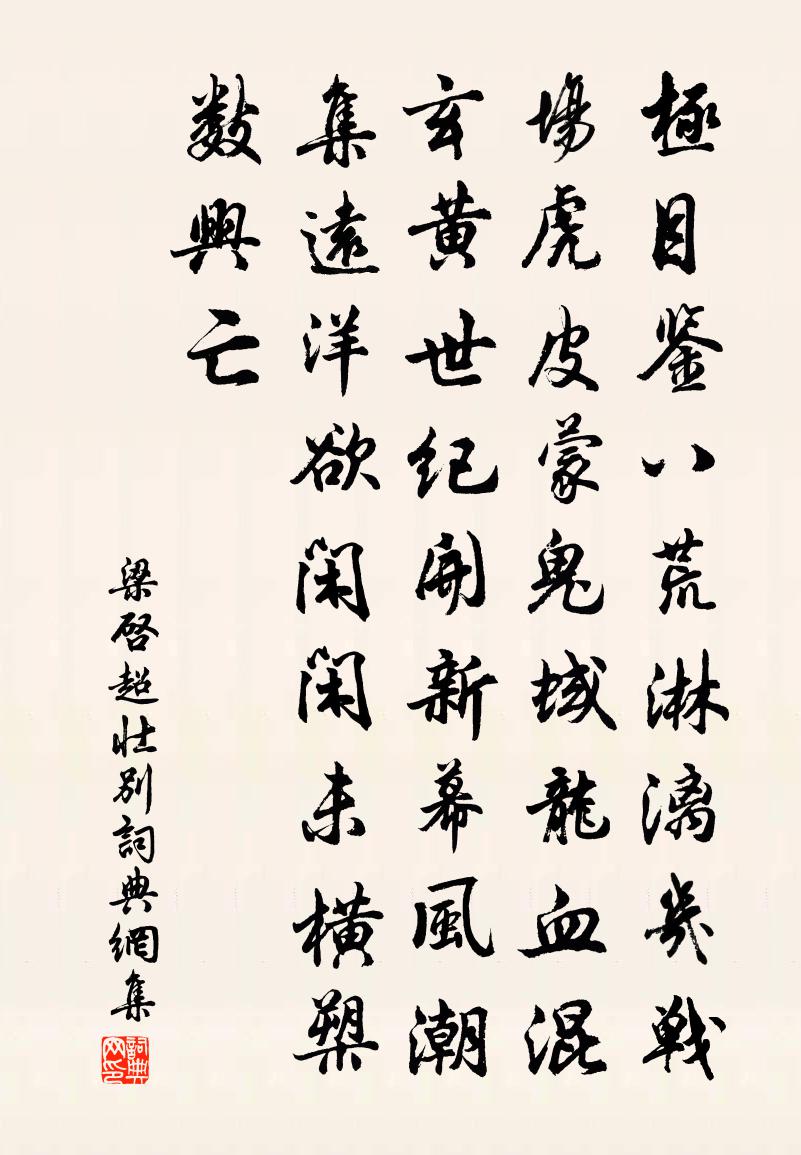 極目鉴八荒淋漓幾戰
場虎皮蒙鬼域龍血混
玄黄世纪開新幕風潮
集遠洋欲闲闲未横槊
数興亡
梁啓超壯别詞典網集
詞典
网印